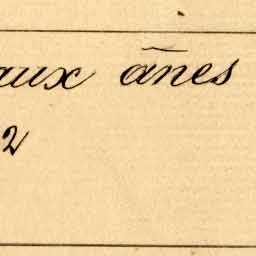 aux ânes
2